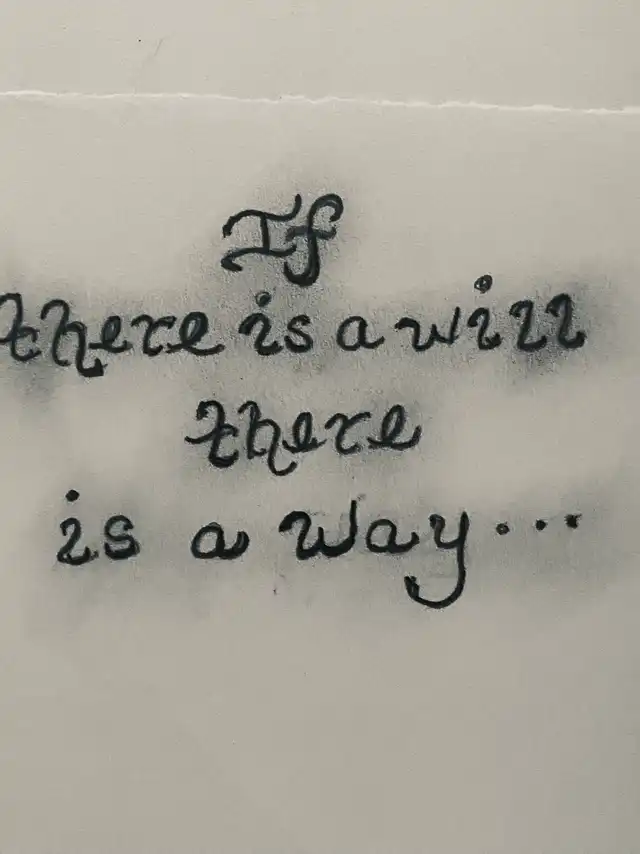 If
there is a will
there
is a way...